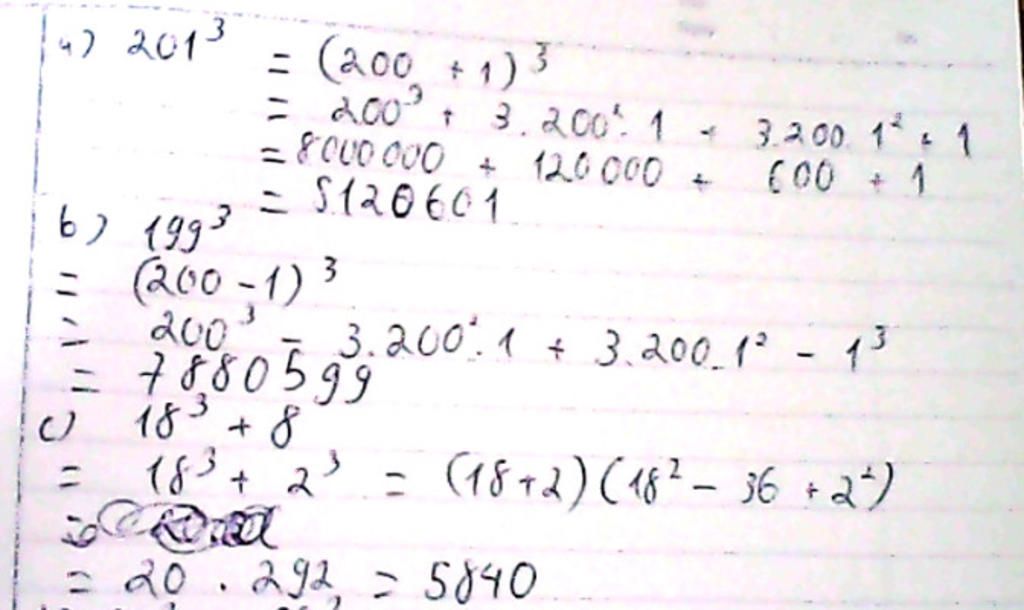 a) 201³ = (200 + 1)³
= 200³ + 3.200².1 + 3.200.1² + 1
= 8000000 + 120000 + 600 + 1
= 8120601
b) 199³
= (200 - 1)³
= 200³ - 3.200².1 + 3.200.1² - 1³
= 7880599
c) 18³ + 8
= 18³ + 2³ = (18+2)(18² - 36 + 2²)
= 20 . 292 = 5840